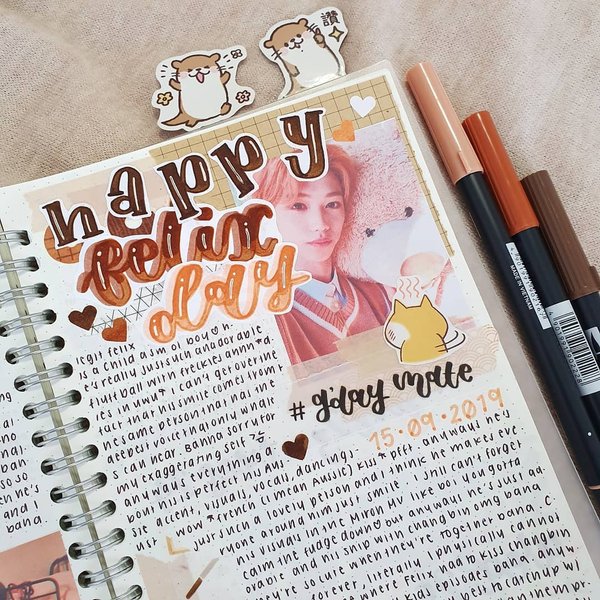 讚
happy
felix
day
legit felix
is a child asm of boy
e's really just such an adorable
fluff ball with freckles annnd
ies in uwu I can't get over the
fact that his smile comes from
the same person that has the
deepest voice that only whale
s can hear. Banna sorry for
my exaggerating self
anyways everything a
bout his is perfect his Aus
sie accent, visuals, vocals, dancing-
ist wow French (I mean Aussie) kiss pfft. anyways he's
just such a lovely person and I think he makes eve
ryone around him just smile. I still can't forget
his visuals in the Miroh MV like boi you gotta
calm the fudge down but anyways he's just ad
orable and his ship with changbin omg bana
they're so cute when they're together bana. C
forever, literally I physically cannot
where Felix had to kiss changbin
kids episodes bana. anyw
best to catch up wi
# g'day mate
15.09.2019
so so
he's
and
bana.
MADE IN VIETNAM